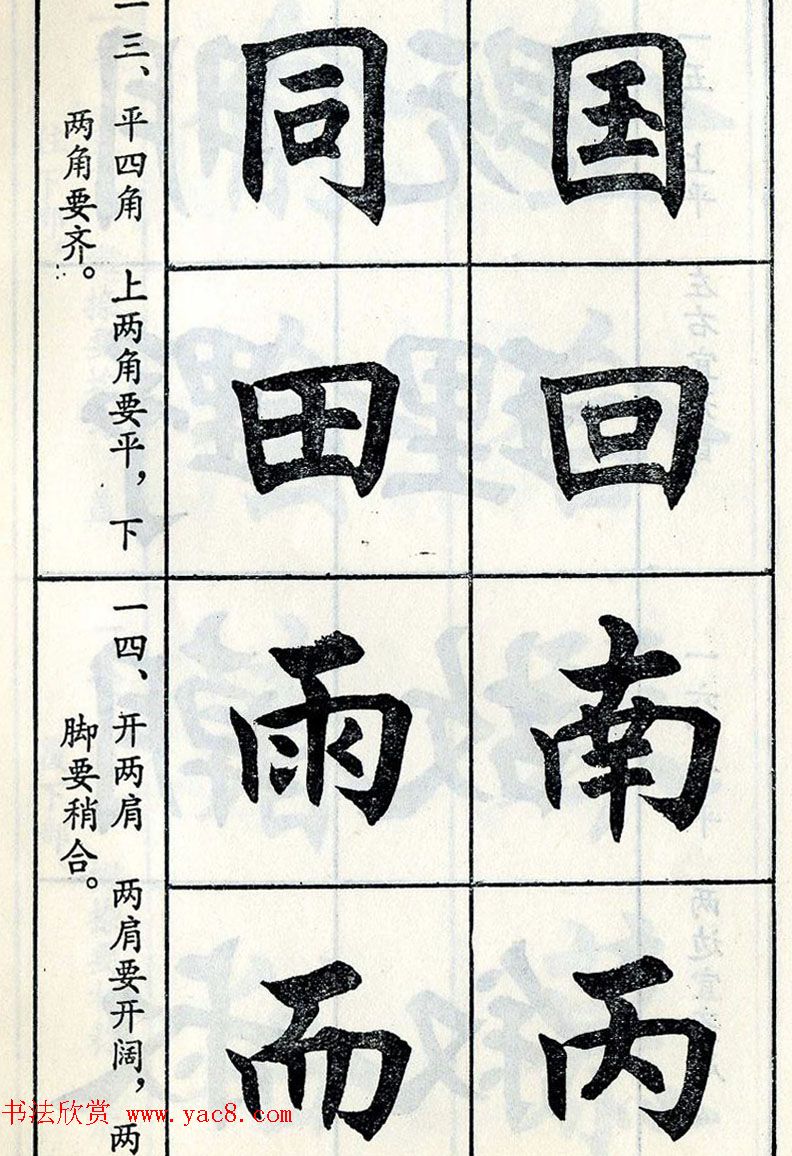 国
回
南
丙
同
田
雨
而
一三、平四角 上两角要平，下
两角要齐。
一四、开两肩 两肩要开阔，两
脚要稍合。
书法欣赏 www.yac8.com